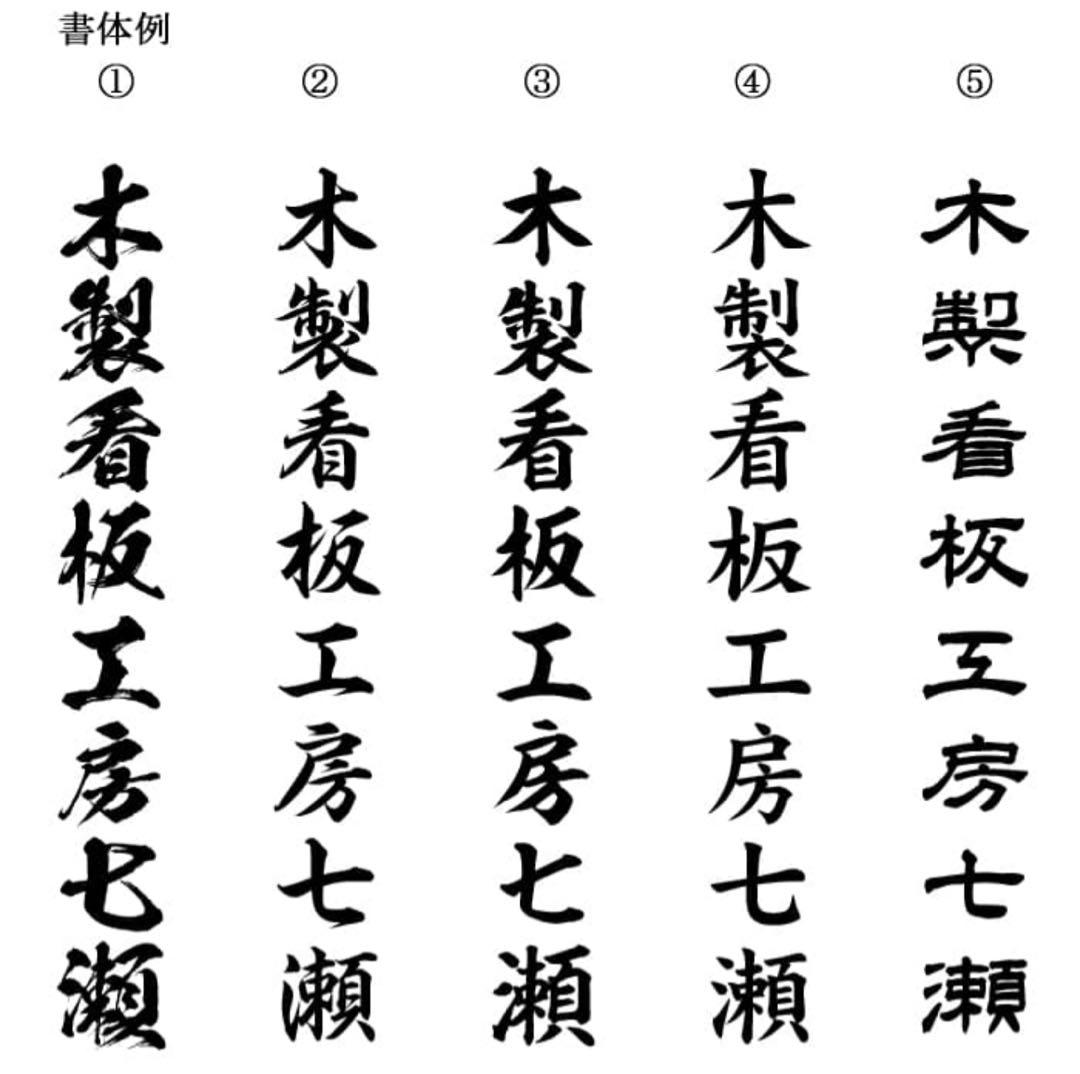 書体例
① ② ③ ④ ⑤
木製看板工房七瀬
木製看板工房七瀬
木製看板工房七瀬
木製看板工房七瀬
木製看板工房七瀬